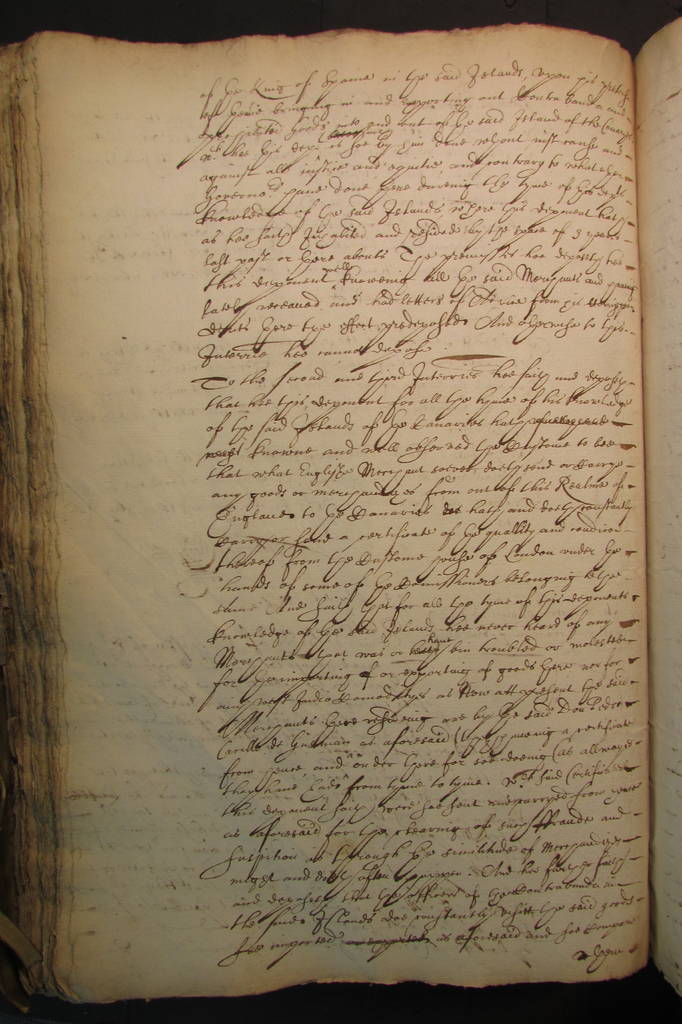 of the King of Spaine in the said Islands, upon his pretence
of theire bringing in and exporting out Contrabanda and
prohibited goods into and out of the said Island of the Canaries
wch hee this depot saith is soe by him done wthout iust cause and
against all iustice and equitie, and contrary to what other
Governors have done there dureing the tyme of this depts
knowledge of the said Islands, where this deponent hath
as hee saith Inhabited and resided by the space of 3 yeares
last past or there abouts The premisses hee deposeth hee
this deponent well knoweing all the said Merchants and haveing
lately receaved and had letters of Advice from his
there the effect predeposed. And otherwise to this
Interrie hee cannot depose.
To the second and third Interries hee saith and deposeth
that hee this deponent for all the tyme of his knowledge
of the said Islands of the Canaries hath
knowne and well observed the Custome to bee
that what English Merchant soever doeth send or Carrye
any goods or merchandizes from out of this Realme of
England to the Canaries hath and doeth constantly
a certificate of the quallity and condicion
thereof from the Custome house of London under the
hands of some of the Commissioners belonging to the
same And saith that for all the tyme of this deponents
knowledge of the said Islands hee never heard of any
Merchants that was or have bin troubled or molested
for the importing or exporting of goods there nor for
any West India Comodityes as Now att present the said
Merchants there resideing are by the said Don Pedro
Carillo de Guzman as aforesaid (they haveing a certificate
from hence and order there for soe doeing (as allwayes
they have had) from tyme to tyme. wch said Certificates
this deponent saith were soe sent and carryed from hence
as aforesaid for the cleering of such fraude and
suspition as through the similitude of Merchandizes
might and doeth often happen. And hee further saith
and deposeth that the officers of the Contrabanda in
the said Islands doe constantly visitt the said goods
soe imported as aforesaid and soe